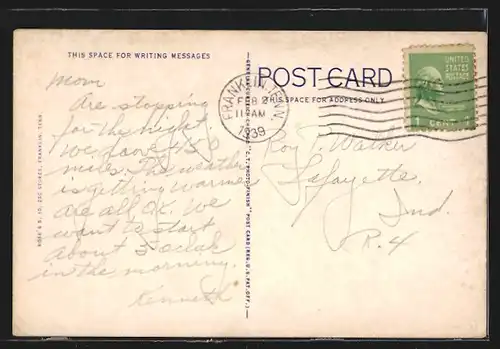 THIS SPACE FOR WRITING MESSAGES
Mom
Are stopping
for the night.
We drove 450
miles. The weather
is getting warmer
are all O.K. We
want to start
about 5 oclock
in the morning.
Kenneth
POST CARD
THIS SPACE FOR ADDRESS ONLY
FRANKLIN, TENN.
FEB 2
11 AM
1939
UNITED
STATES
POSTAGE
1 CENT 1
Roy T. Walker
Lafayette
Ind.
R. 4
ROSE'S 5, 10, 25C STORES, FRANKLIN, TENN.
"C.T. PHOTO-FINISH" POST CARD (REG. U.S. PAT. OFF.)